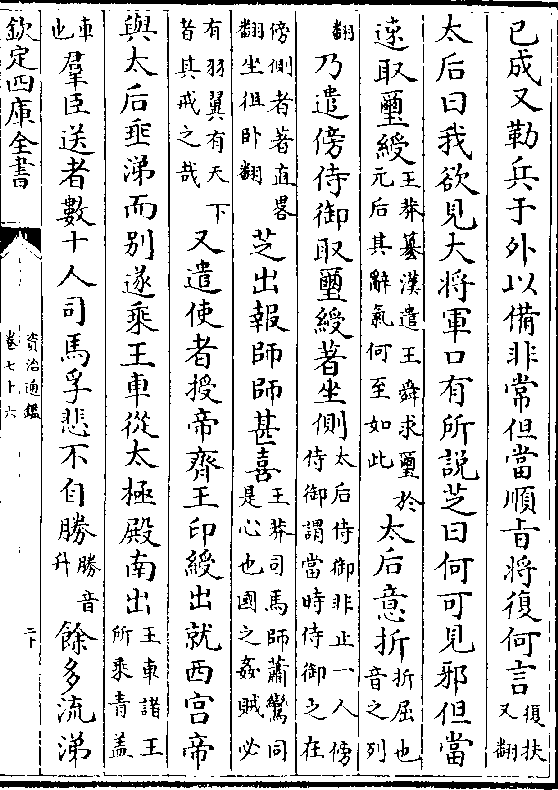 已成又勒兵于外以備非常但當順㫖將復何言復扶又翻
太后曰我欲見大將軍口有所說芝曰何可見邪但當
速取璽綬王莽簒漢遣王舜求璽於元后其辭氣何至如此太后意折折屈也音之列
翻乃遣傍侍御取璽綬著坐側太后侍御非止一人傍侍御謂當時侍御之在
傍側者著直畧翻坐徂卧翻芝出報師師甚喜王莽司馬師蕭鸞同是心也國之姦賊必
有羽翼有天下者其戒之哉又遣使者授帝齊王印綬出就西宫帝
與太后垂涕而别遂乘王車從太極殿南出王車諸王所乘青盖
車也羣臣送者數十人司馬孚悲不自勝勝音升餘多流涕
欽定四庫全書
資治通鑑
卷七十六
二十